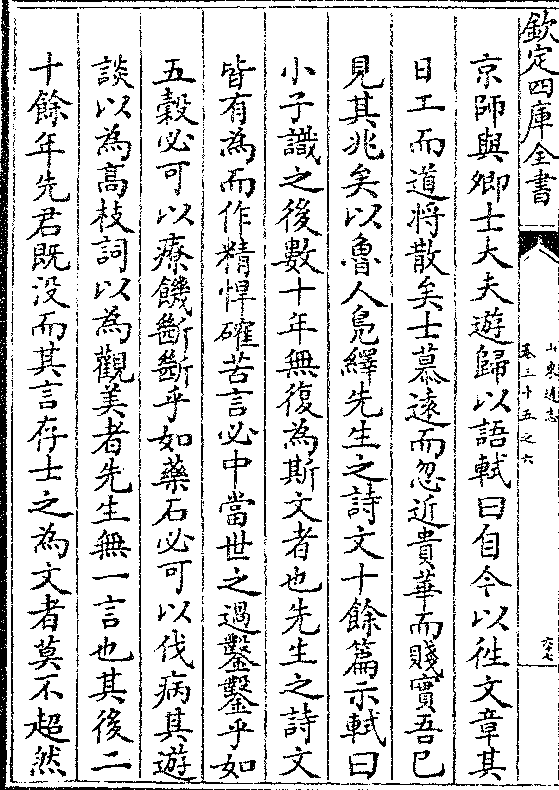 欽定四庫全書
山東通志
卷三十五之六
京師與卿士大夫遊歸以語軾曰自今以徃文章其
日工而道將散矣士慕遠而忽近貴華而賤實吾已
見其兆矣以魯人鳧繹先生之詩文十餘篇示軾曰
小子識之後數十年無復為斯文者也先生之詩文
皆有為而作精悍確苦言必中當世之過鑿鑿乎如
五穀必可以療饑斷斷乎如藥石必可以伐病其遊
談以為髙枝詞以為觀美者先生無一言也其後二
十餘年先君既没而其言存士之為文者莫不超然